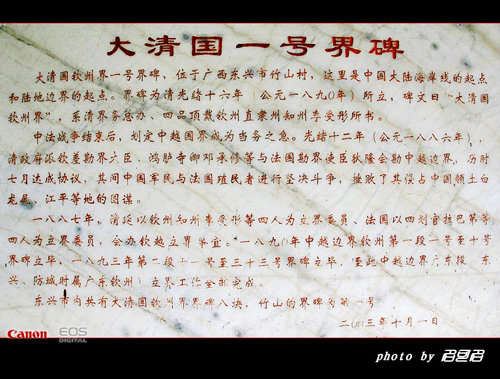 大清国一号界碑
大清国钦州界一号界碑，位于广西东兴市竹山村，这里是中国大陆海岸线的起点
和陆地边界的起点。界碑为清光绪十六年（公元一八九0年）所立，碑文曰“大清国
钦州界”，系清界务总办、四品顶戴钦州直隶州知州李受彤所书。
中法战争结束后，划定中越国界成为当务之急。光绪十二年（公元一八八六年），
清政府派钦差勘界大臣、鸿胪寺卿邓承修等与法国勘界使臣狄隆会勘中越边界，历时
七月达成协议，其间中国军民与法国殖民者进行坚决斗争，挫败了其侵占中国领土白
龙尾、江平等地的图谋。
一八八七年，清廷以钦州知州李受彤等四人为立界委员、法国以四划官拉巴第等
四人为立界委员，会办钦越立界事宜。一八九0年中越边界钦州第一段一号至十号
界碑立毕，一八九三年第二段十一号至三十三号界碑立毕，至此中越边界广东段（东
兴、防城时属广东钦州）立界工作全部完成
东兴市内共有大清国钦州界界碑八块，竹山的界碑为第一号
二00三年十月一日
Canon EOS
DIGITAL
photo by